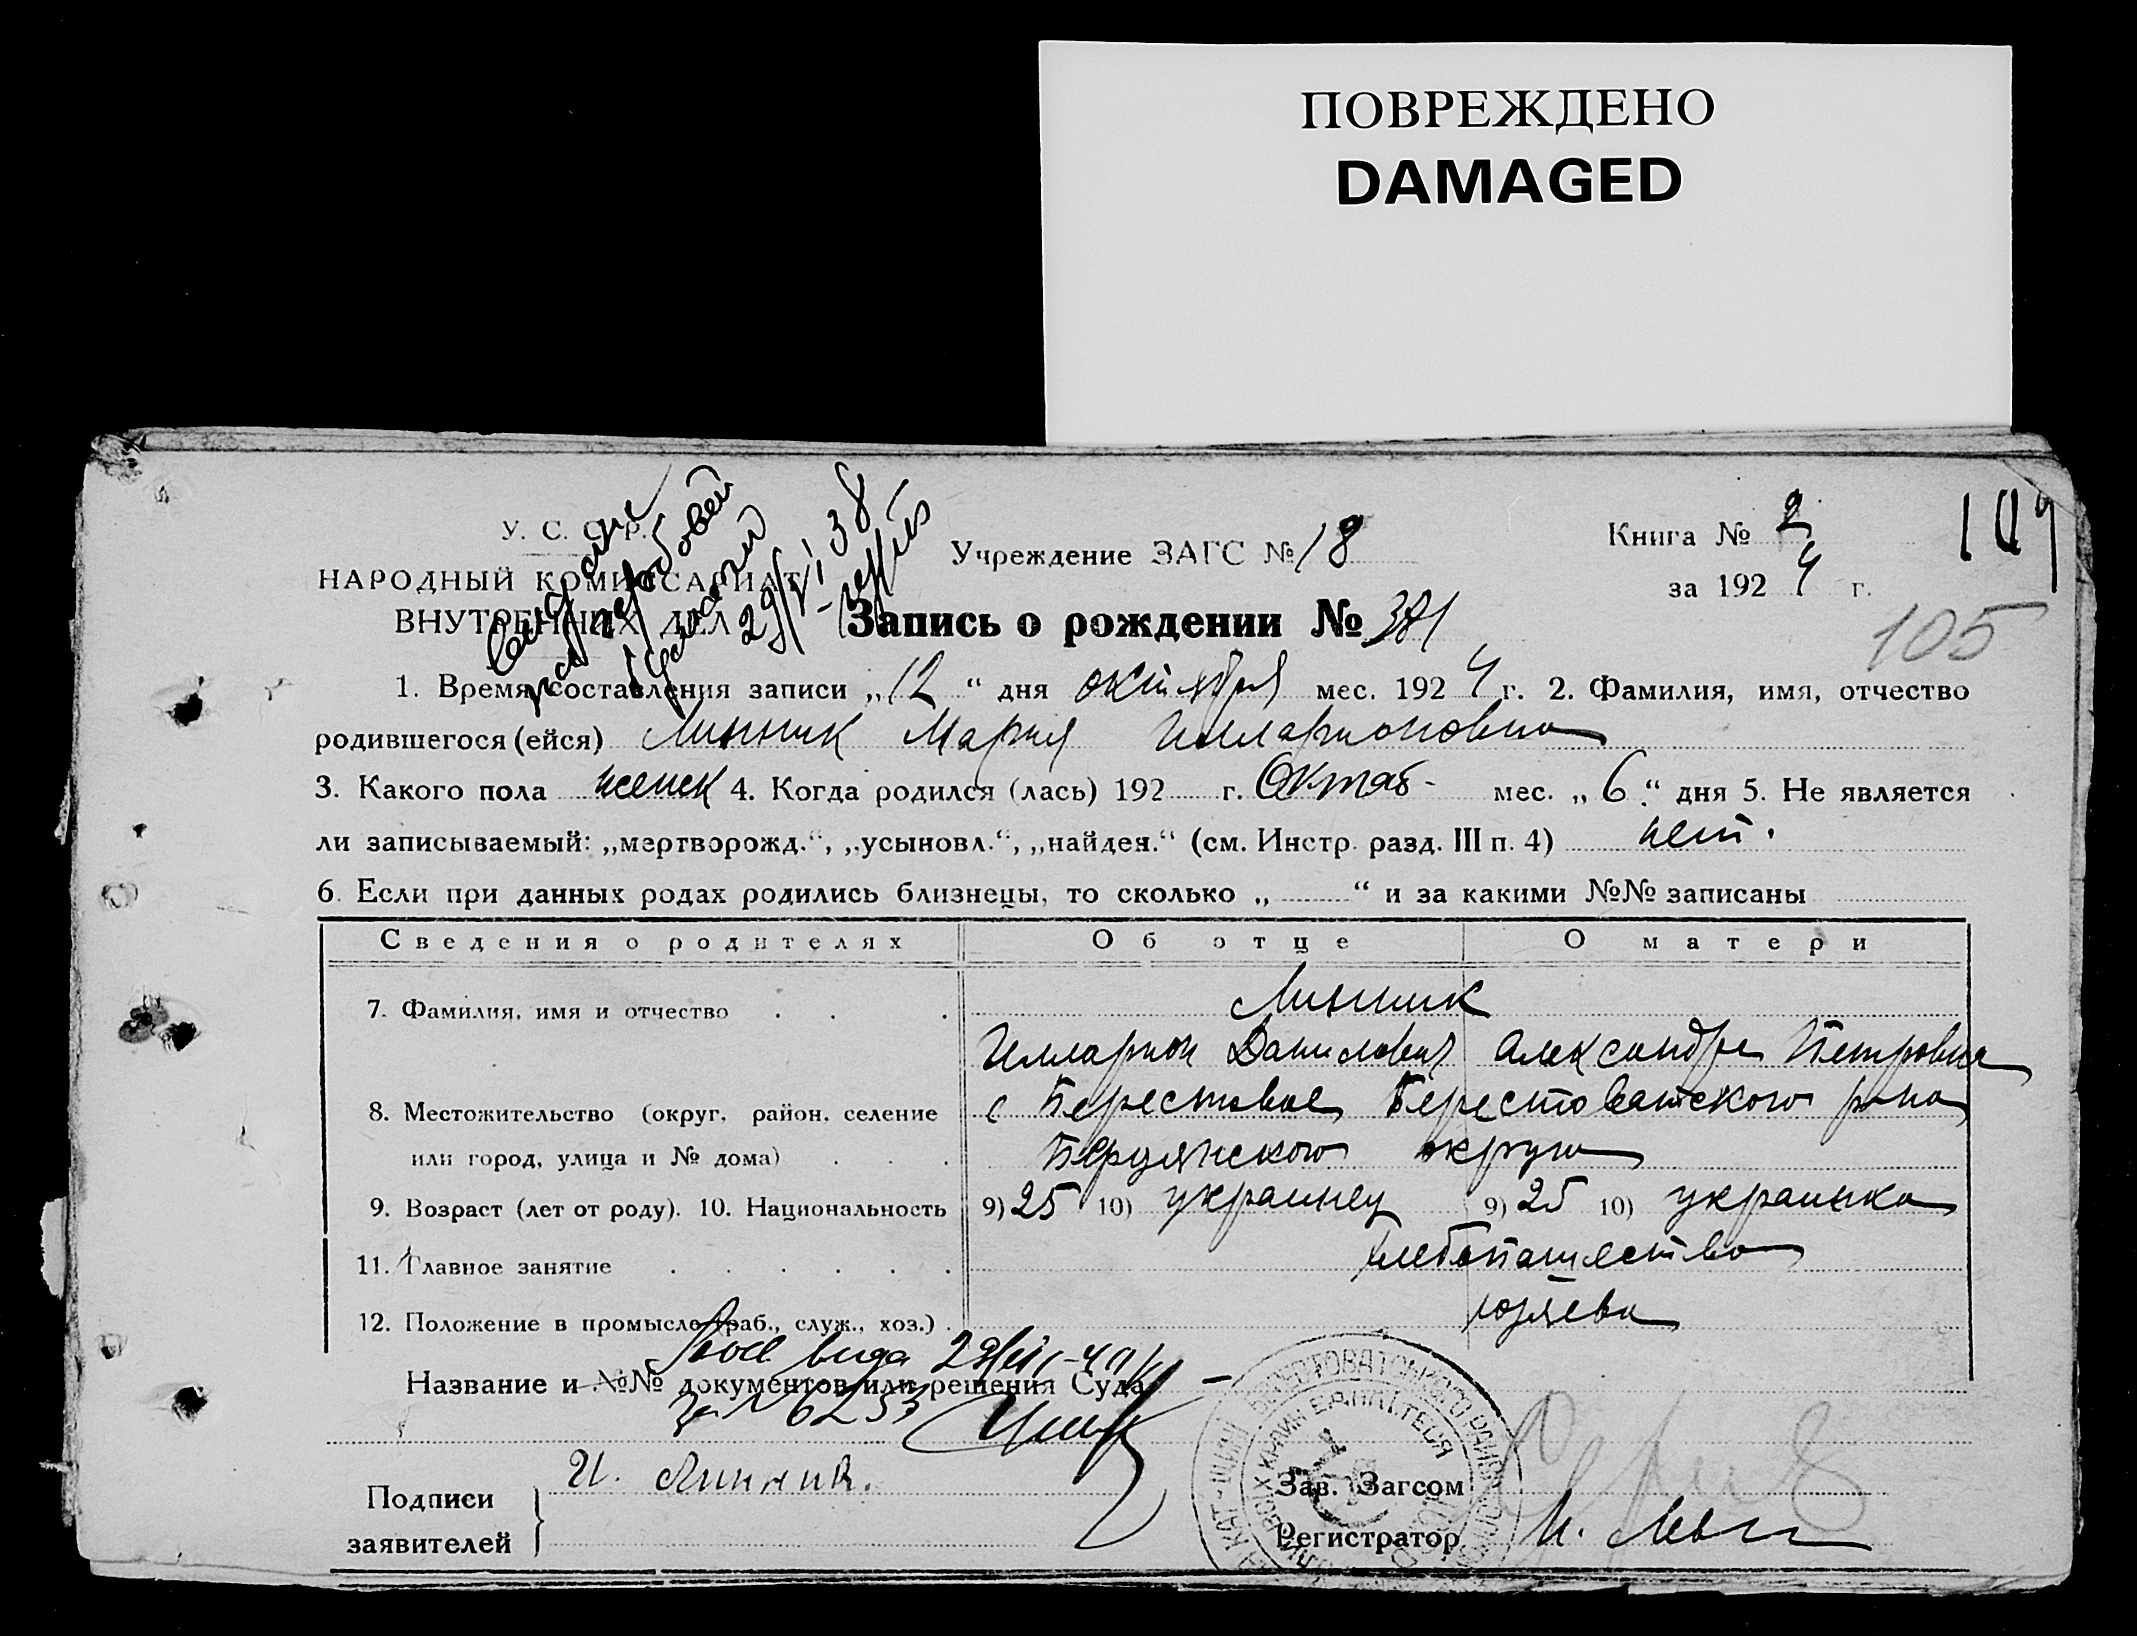 ПОВРЕЖДЕНО
DAMAGED
У. С. С. Р.
НАРОДНЫЙ КОМИССАРИАТ
ВНУТРЕННИХ ДЕЛ
29/VI 38
Учреждение ЗАГС № 18
Книга № 2
за 1924 г.
109
105
Запись о рождении № 381
1. Время составления записи „12“ дня октября мес. 1924 г. 2. Фамилия, имя, отчество
родившегося (ейся) Линник Мария Илларионовна
3. Какого пола женск 4. Когда родился (лась) 192 г. Октяб- мес. „6“ дня 5. Не является
ли записываемый: „мертворожд.“, „усыновл.“, „найден.“ (см. Инстр. разд. III п. 4) нет.
6. Если при данных родах родились близнецы, то сколько „ “ и за какими №№ записаны
Сведения о родителях Об отце О матери
7. Фамилия, имя и отчество Линник
Илларион Данилович Александра Петровна
8. Местожительство (округ, район, селение с Берестовое Берестоватского р-на
или город, улица и № дома) Бердянского округа
9. Возраст (лет от роду). 10. Национальность 9) 25 10) украинец 9) 25 10) украинка
11. Главное занятие хлебопашество
12. Положение в промысле (раб., служ., хоз.) хозяева
Название и №№ документов или решения Суда
за № 6253
Подписи
заявителей
И. Линник.
Зав. Загсом
Регистратор